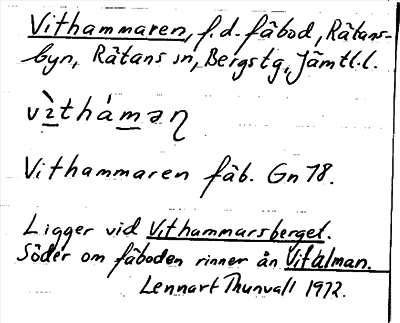 Vithammaren, f.d. fäbod, Rätans-
byn, Rätans sn, Bergs tg, Jämtl.l.
vìthámaɳ
Vithammaren fäb. Gn 78.
Ligger vid Vithammarsberget.
Söder om fäboden rinner ån Vitålman.
Lennart Thunvall 1972.